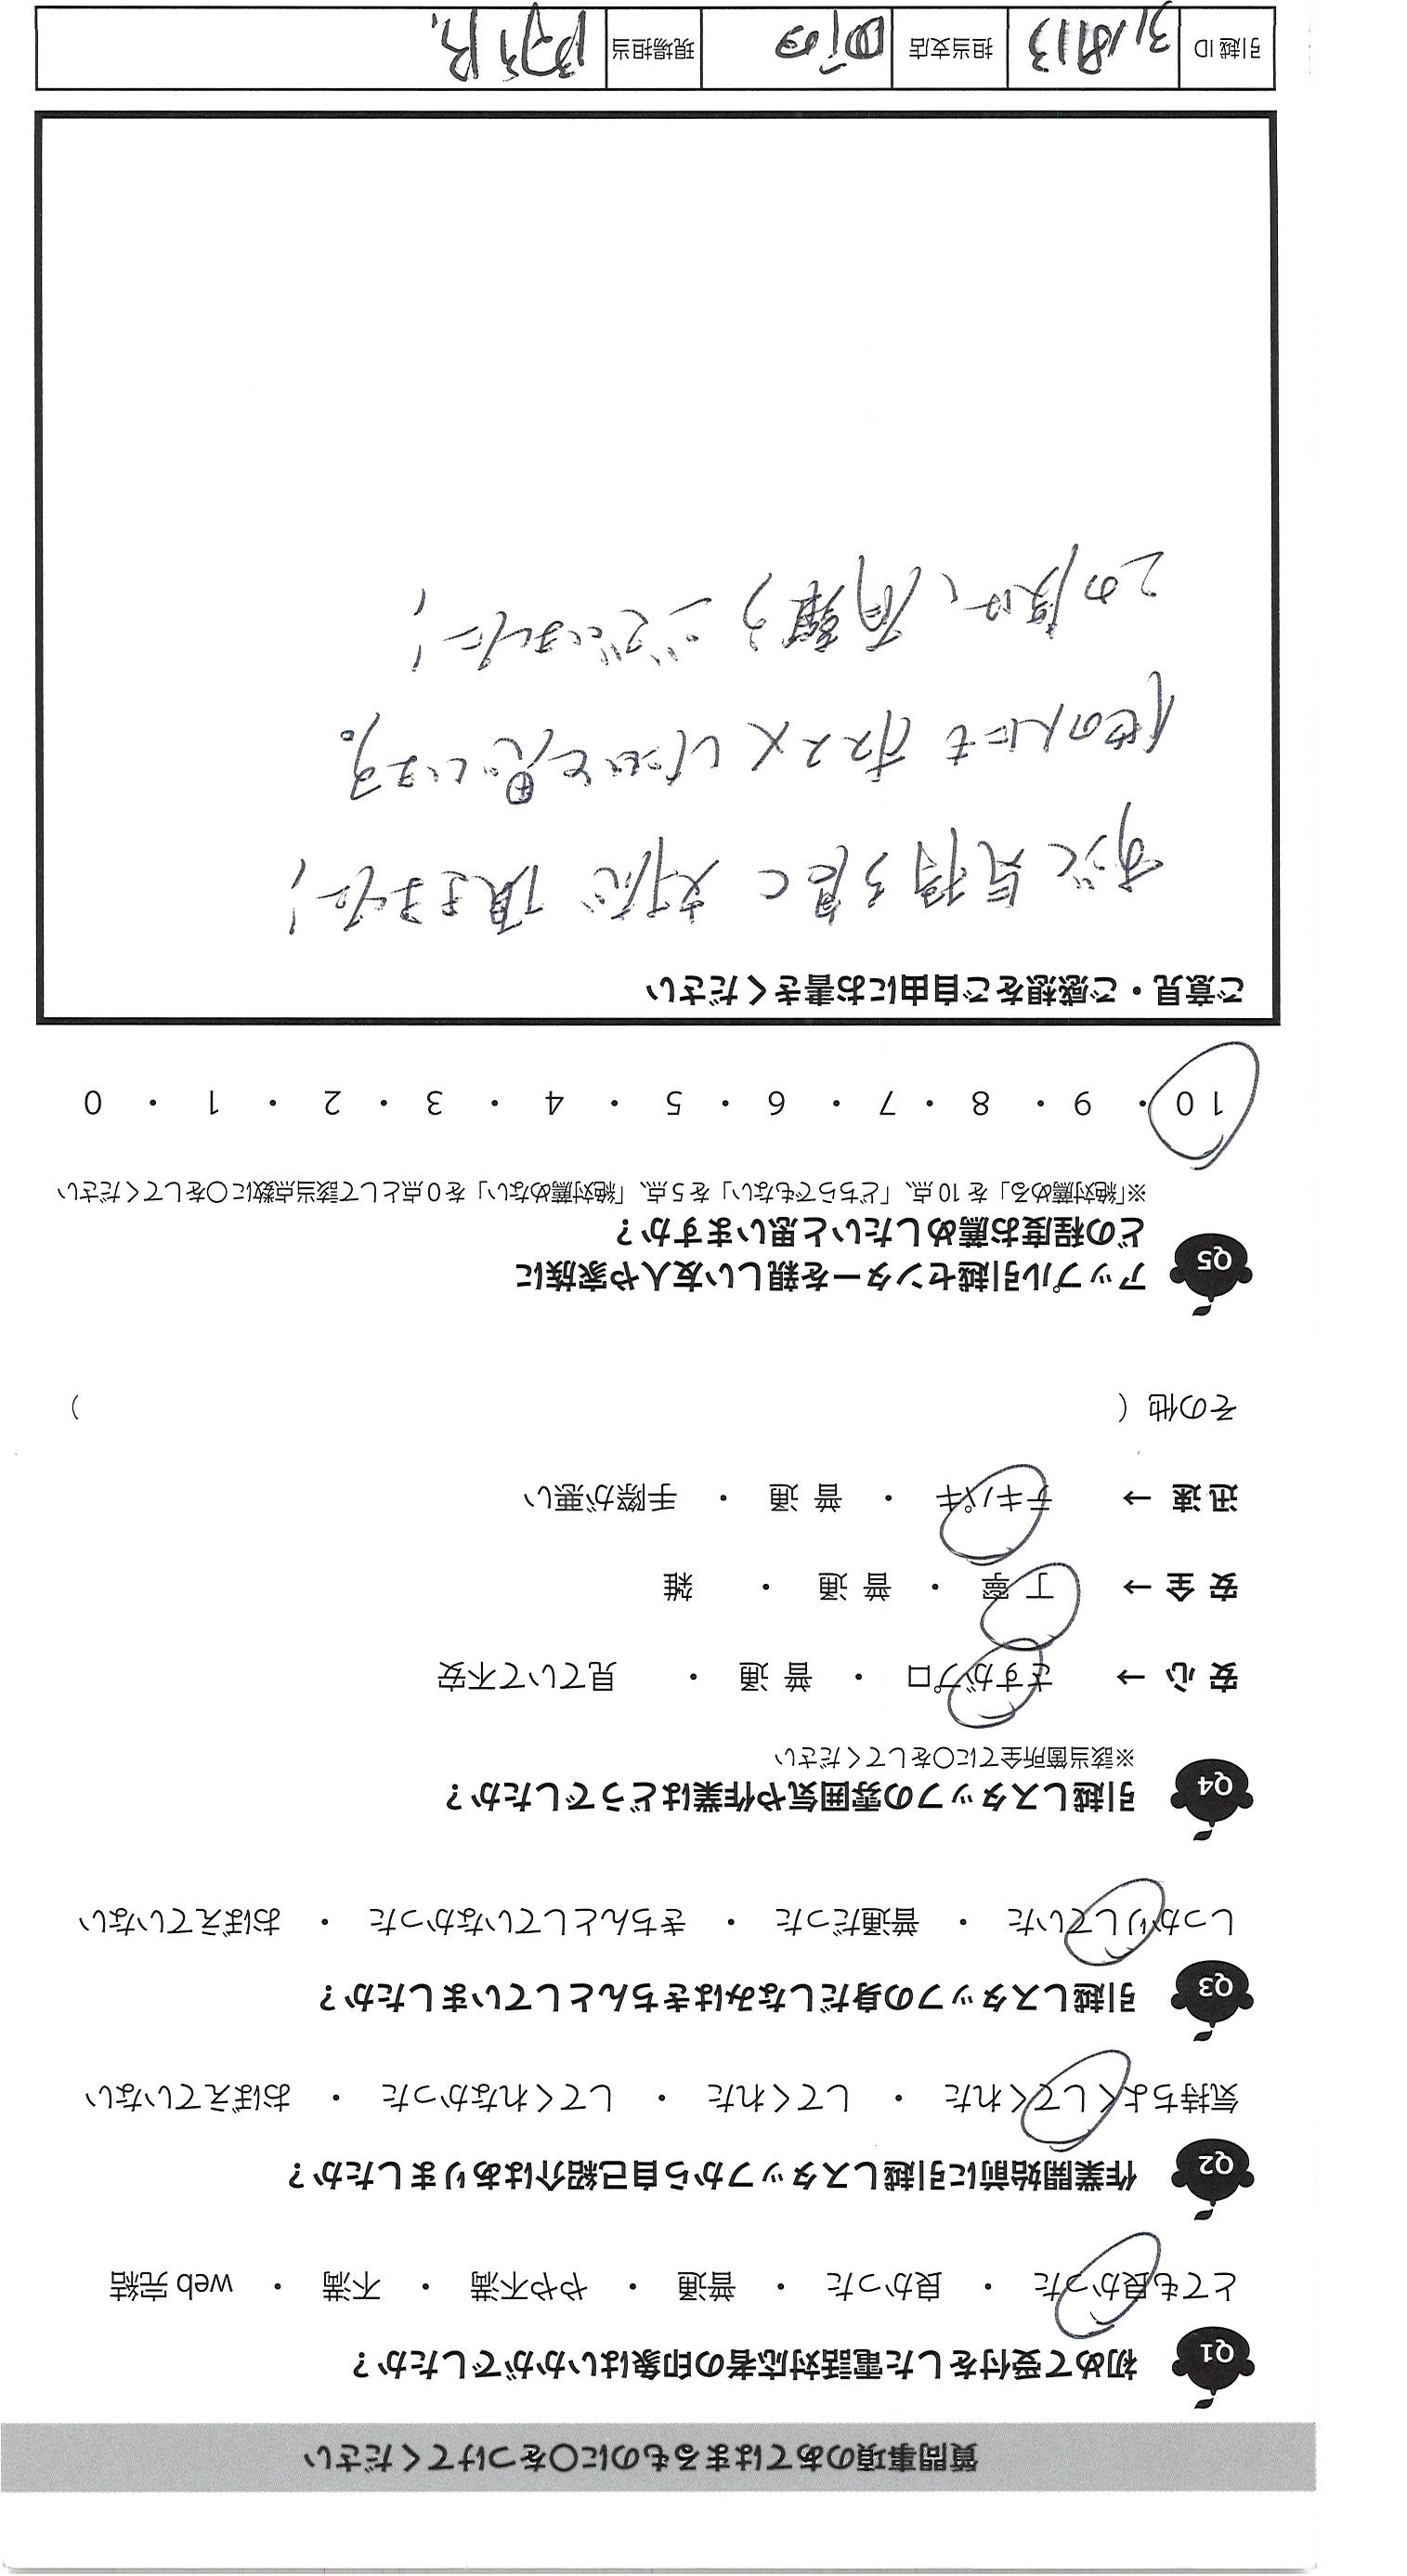 質問事項のあてはまるものに○をつけてください
Q1 初めて受付をした電話対応者の印象はいかがでしたか？
とても良かった ・ 良かった ・ 普通 ・ やや不満 ・ 不満 ・ web 完結
Q2 作業開始前に引越しスタッフから自己紹介はありましたか？
気持ちよくしてくれた ・ してくれた ・ してくれなかった ・ おぼえていない
Q3 引越しスタッフの身だしなみはきちんとしていましたか？
しっかりしていた ・ 普通だった ・ きちんとしていなかった ・ おぼえていない
Q4 引越しスタッフの雰囲気や作業はどうでしたか？
※該当箇所全てに○をしてください
安 心 → さすがプロ ・ 普 通 ・ 見ていて不安
安 全 → 丁 寧 ・ 普 通 ・ 雑
迅 速 → テキパキ ・ 普 通 ・ 手際が悪い
その他（ ）
Q5 アップル引越センターを親しい友人や家族に
どの程度お薦めしたいと思いますか？
※「絶対薦める」を 10 点、「どちらでもない」を 5 点、「絶対薦めない」を 0 点として該当点数に○をしてください
10 ・ 9 ・ 8 ・ 7 ・ 6 ・ 5 ・ 4 ・ 3 ・ 2 ・ 1 ・ 0
ご意見・ご感想をご自由にお書きください
気持ち良く対応頂きました！
他の人にもオススメしたいと思います。
この度は、有難うございました！
引越 ID 318113 担当支店 現場担当